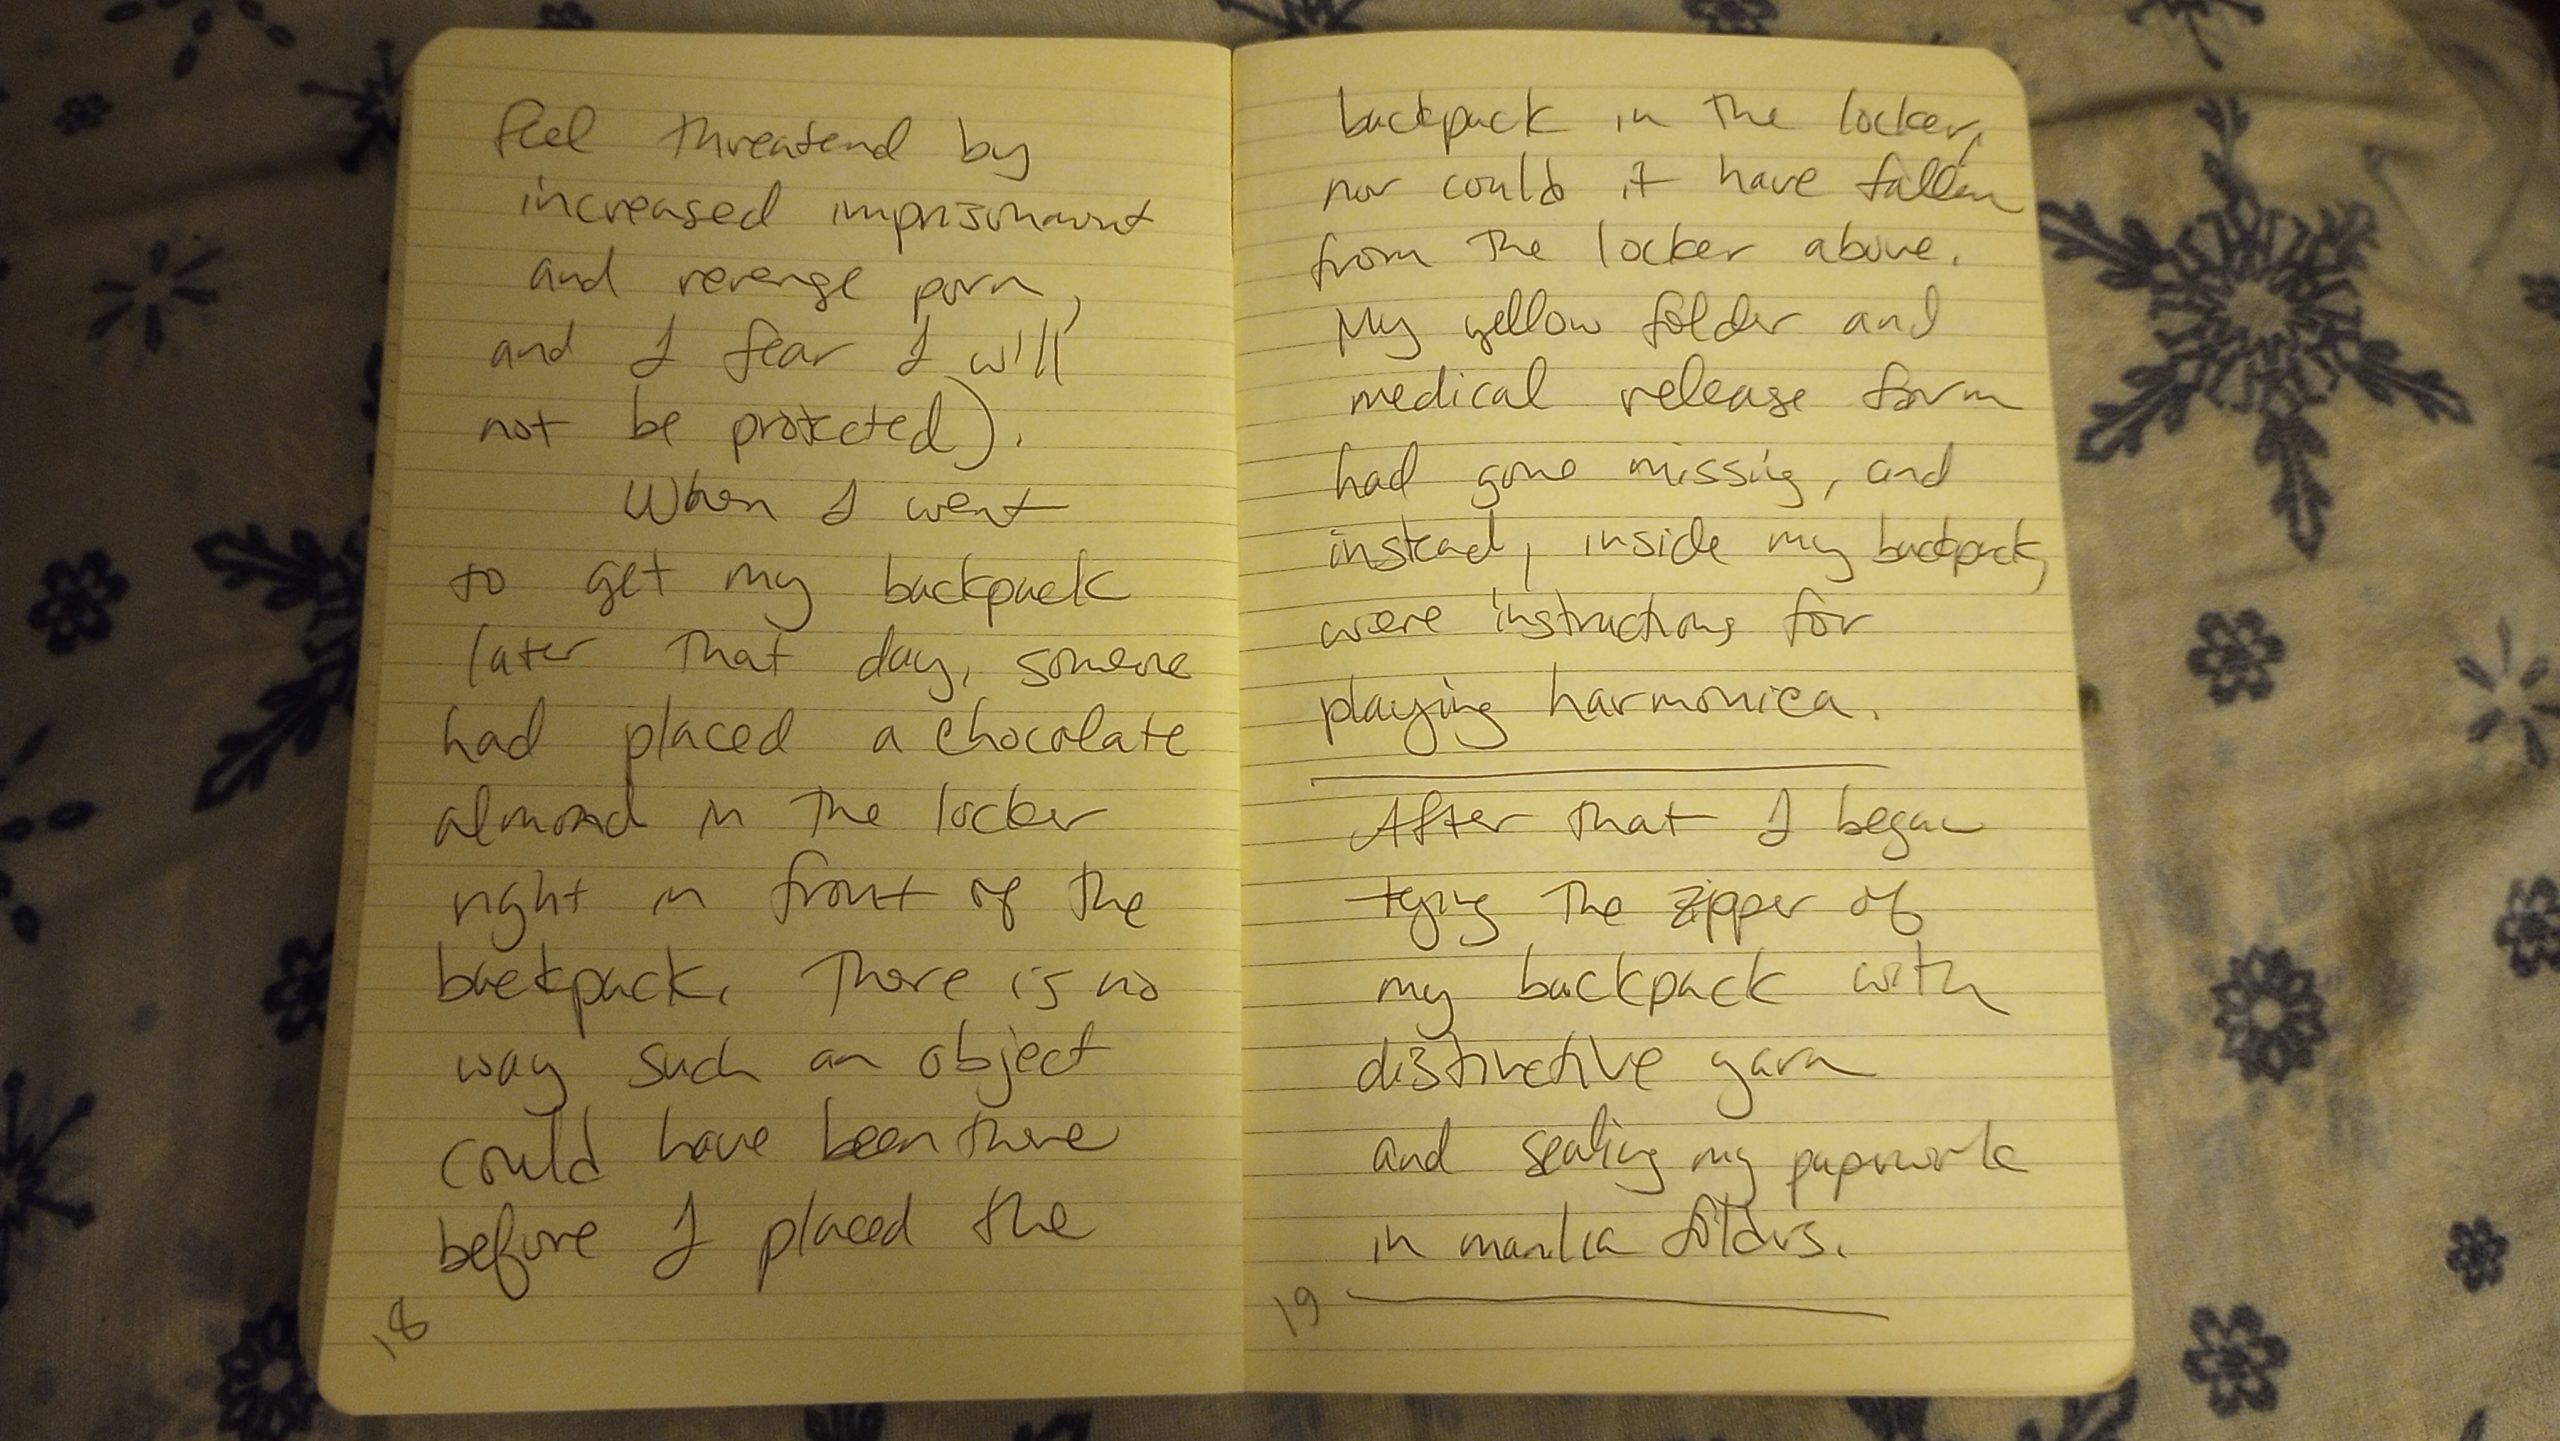 feel threatend by
increased imprisonment
and revenge porn,
and I fear I will
not be protected).
When I went
to get my backpack
later that day, someone
had placed a chocolate
almond in the locker
right in front of the
backpack. There is no
way such an object
could have been there
before I placed the
18
backpack in the locker,
nor could it have fallen
from the locker above.
My yellow folder and
medical release form
had gone missing, and
instead, inside my backpack,
were instructions for
playing harmonica.
After that I began
tying the zipper of
my backpack with
distinctive yarn
and sealing my paperwork
in manila folders.
19